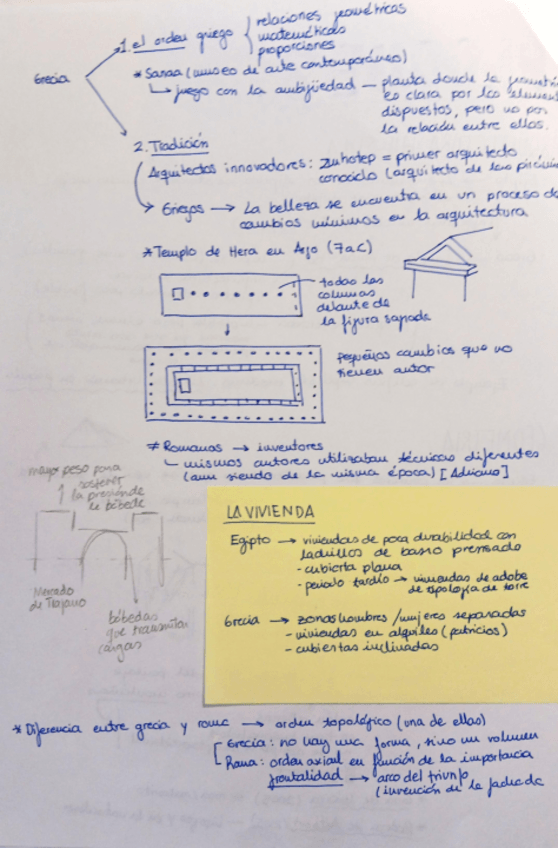 Grecia
1. el orden griego
relaciones geométricas
matemáticas
proporciones
* Sanaa (museo de arte contemporáneo)
↳ juego con la ambigüedad — planta donde la geometrí
es clara por los element
dispuestos, pero no por
la relación entre ellos.
2. Tradición
Arquitectos innovadores: Imhotep = primer arquitecto
conocido (arquitecto de las pirámi
Griegos → La belleza se encuentra en un proceso de
cambios mínimos en la arquitectura
* Templo de Hera en Argo (7 a C)
todas las
columnas
delante de
la figura sagrada
pequeños cambios que no
tienen autor
≠ Romanos → inventores
mismos autores utilizaban técnicas diferentes
(aun siendo de la misma época) [Adriano]
mayor peso para
sostener
la presión de
la bóveda
Mercado
de Trajano
bóbedas
que transmitan
cargas
LA VIVIENDA
Egipto → viviendas de poca durabilidad con
ladrillos de barro prensado
- cubierta plana
- periodo tardío → viviendas de adobe
de tipología de torre
Grecia → zonas hombres / mujeres separadas
- viviendas en alquiler (patricios)
- cubiertas inclinadas
* Diferencia entre grecia y roma → orden topológico (una de ellas)
Grecia: no hay una forma, sino un volumen
Roma: orden axial en función de la importancia
frontalidad → arco del triunfo
(invención de la fachada